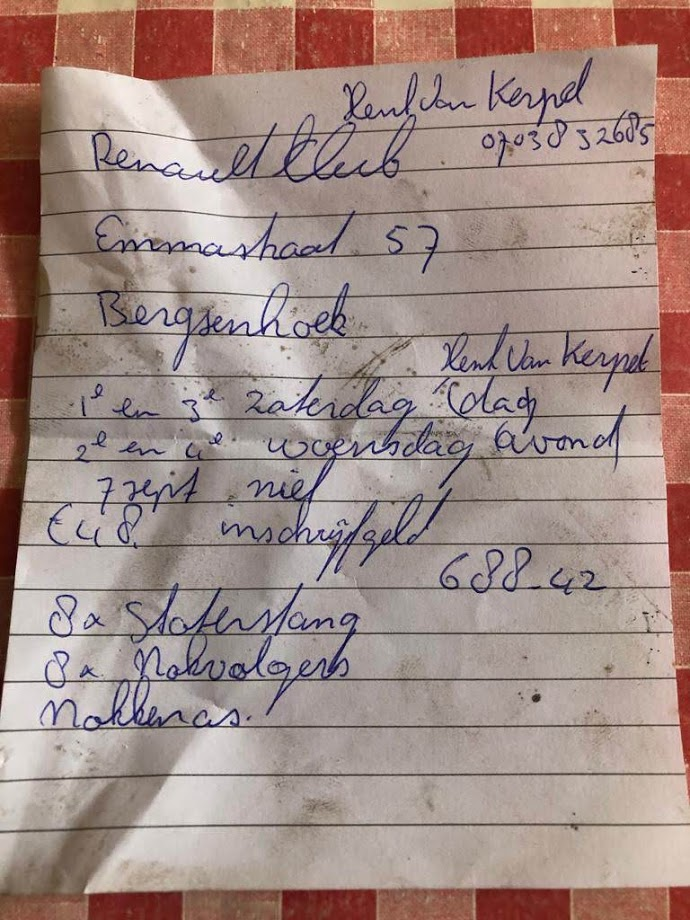 Henk Van Kerpel
0703832685
Renault Club
Emmastraat 57
Bergsenhoek
Henk Van Kerpel
1e en 3e zaterdag (dag)
2e en 4e woensdag (avond)
7 sept niet
€48. inschrijfgeld
688-42
8x Stoterstang
8x Nokvolgers
Nokkenas.